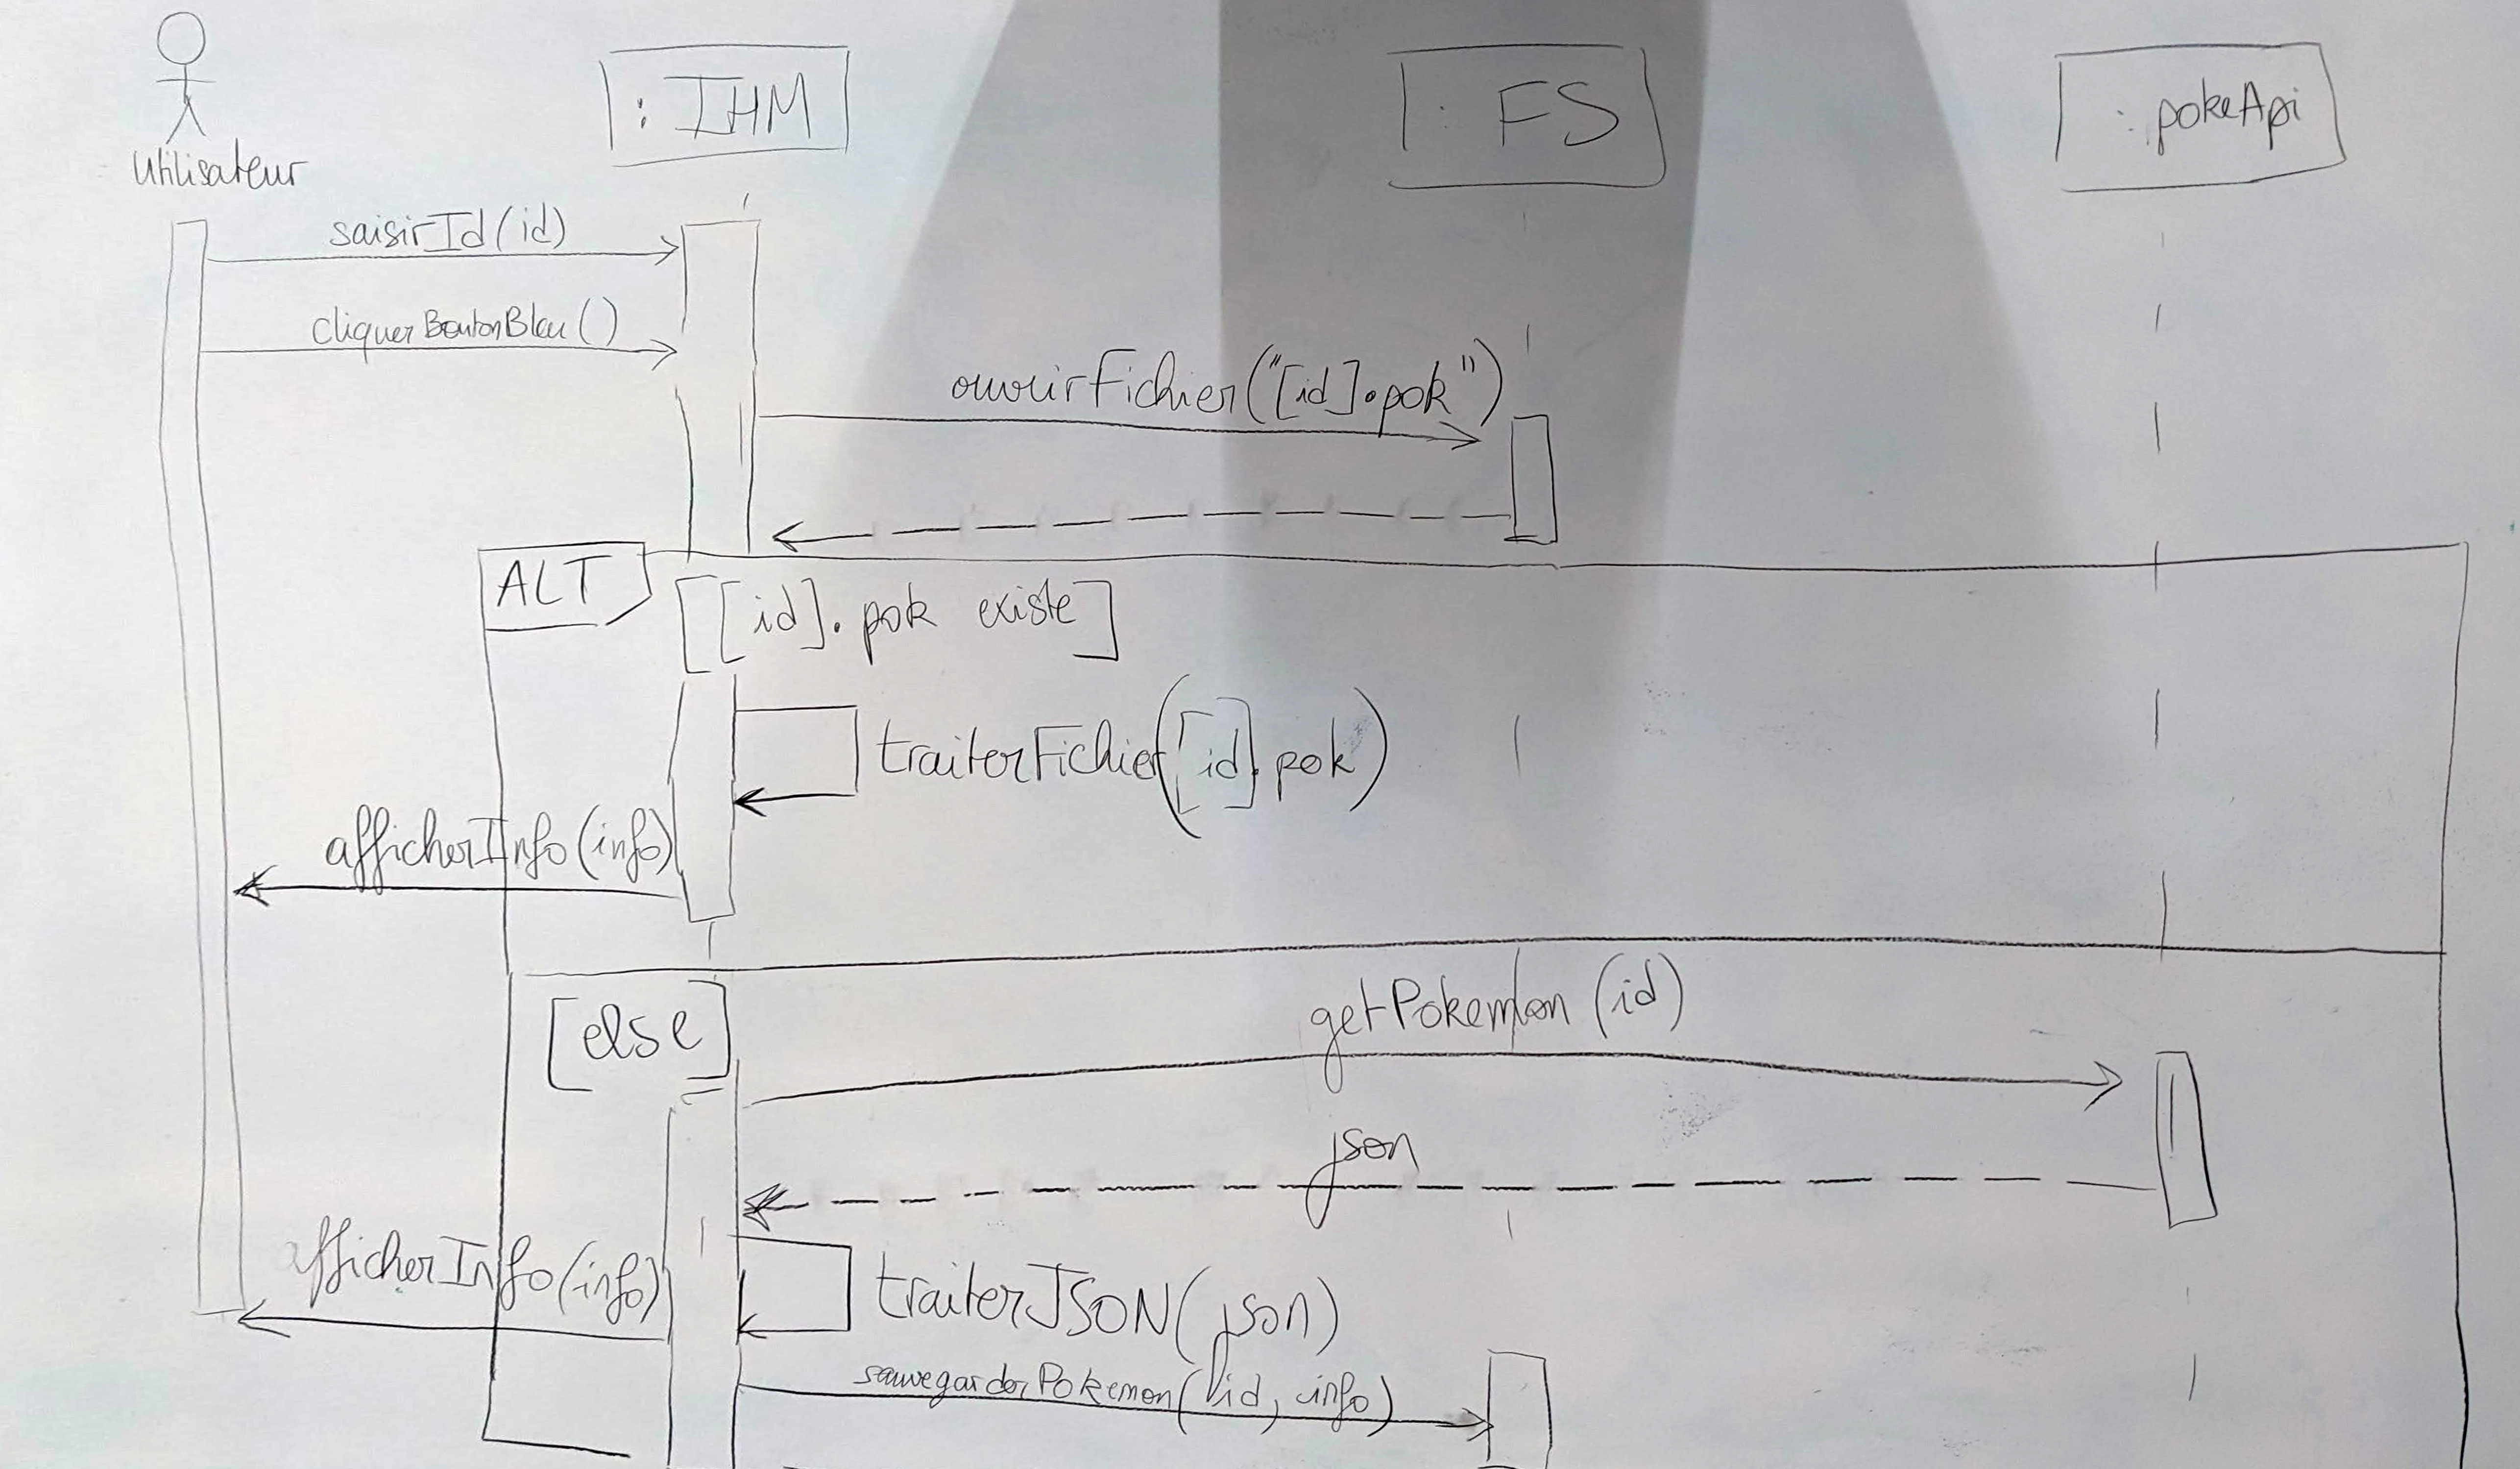 Utilisateur
: IHM
: FS
: pokeApi
saisirId(id)
cliquerBoutonBleu()
ouvrirFichier("[id].pok")
ALT
[[id].pok existe]
traiterFichier([id].pok)
afficherInfo(info)
[else]
getPokemon(id)
json
afficherInfo(info)
traiterJSON(json)
sauvegarderPokemon(id, info)